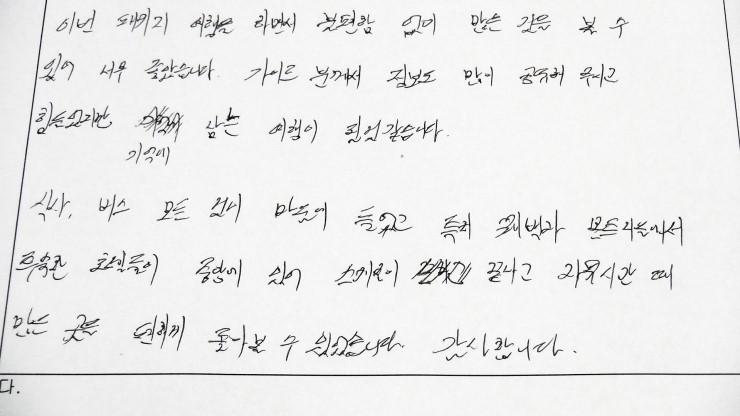 이번 패키지 여행을 하면서 불편함 없이 많은 것을 볼 수
있어 너무 좋았습니다. 가이드 분께서 정보도 많이 공유해 주시고
힘들었지만 남는 여행이 된것같습니다.
기억에
식사, 버스 모든 것이 마음에 들었고 특히 퀘벡과 몬트리올에서
묵은 호텔들이 중앙에 있어 스케줄이 끝나고 자유시간 때
많은 곳을 편하게 돌아볼 수 있었습니다. 감사합니다.
다.